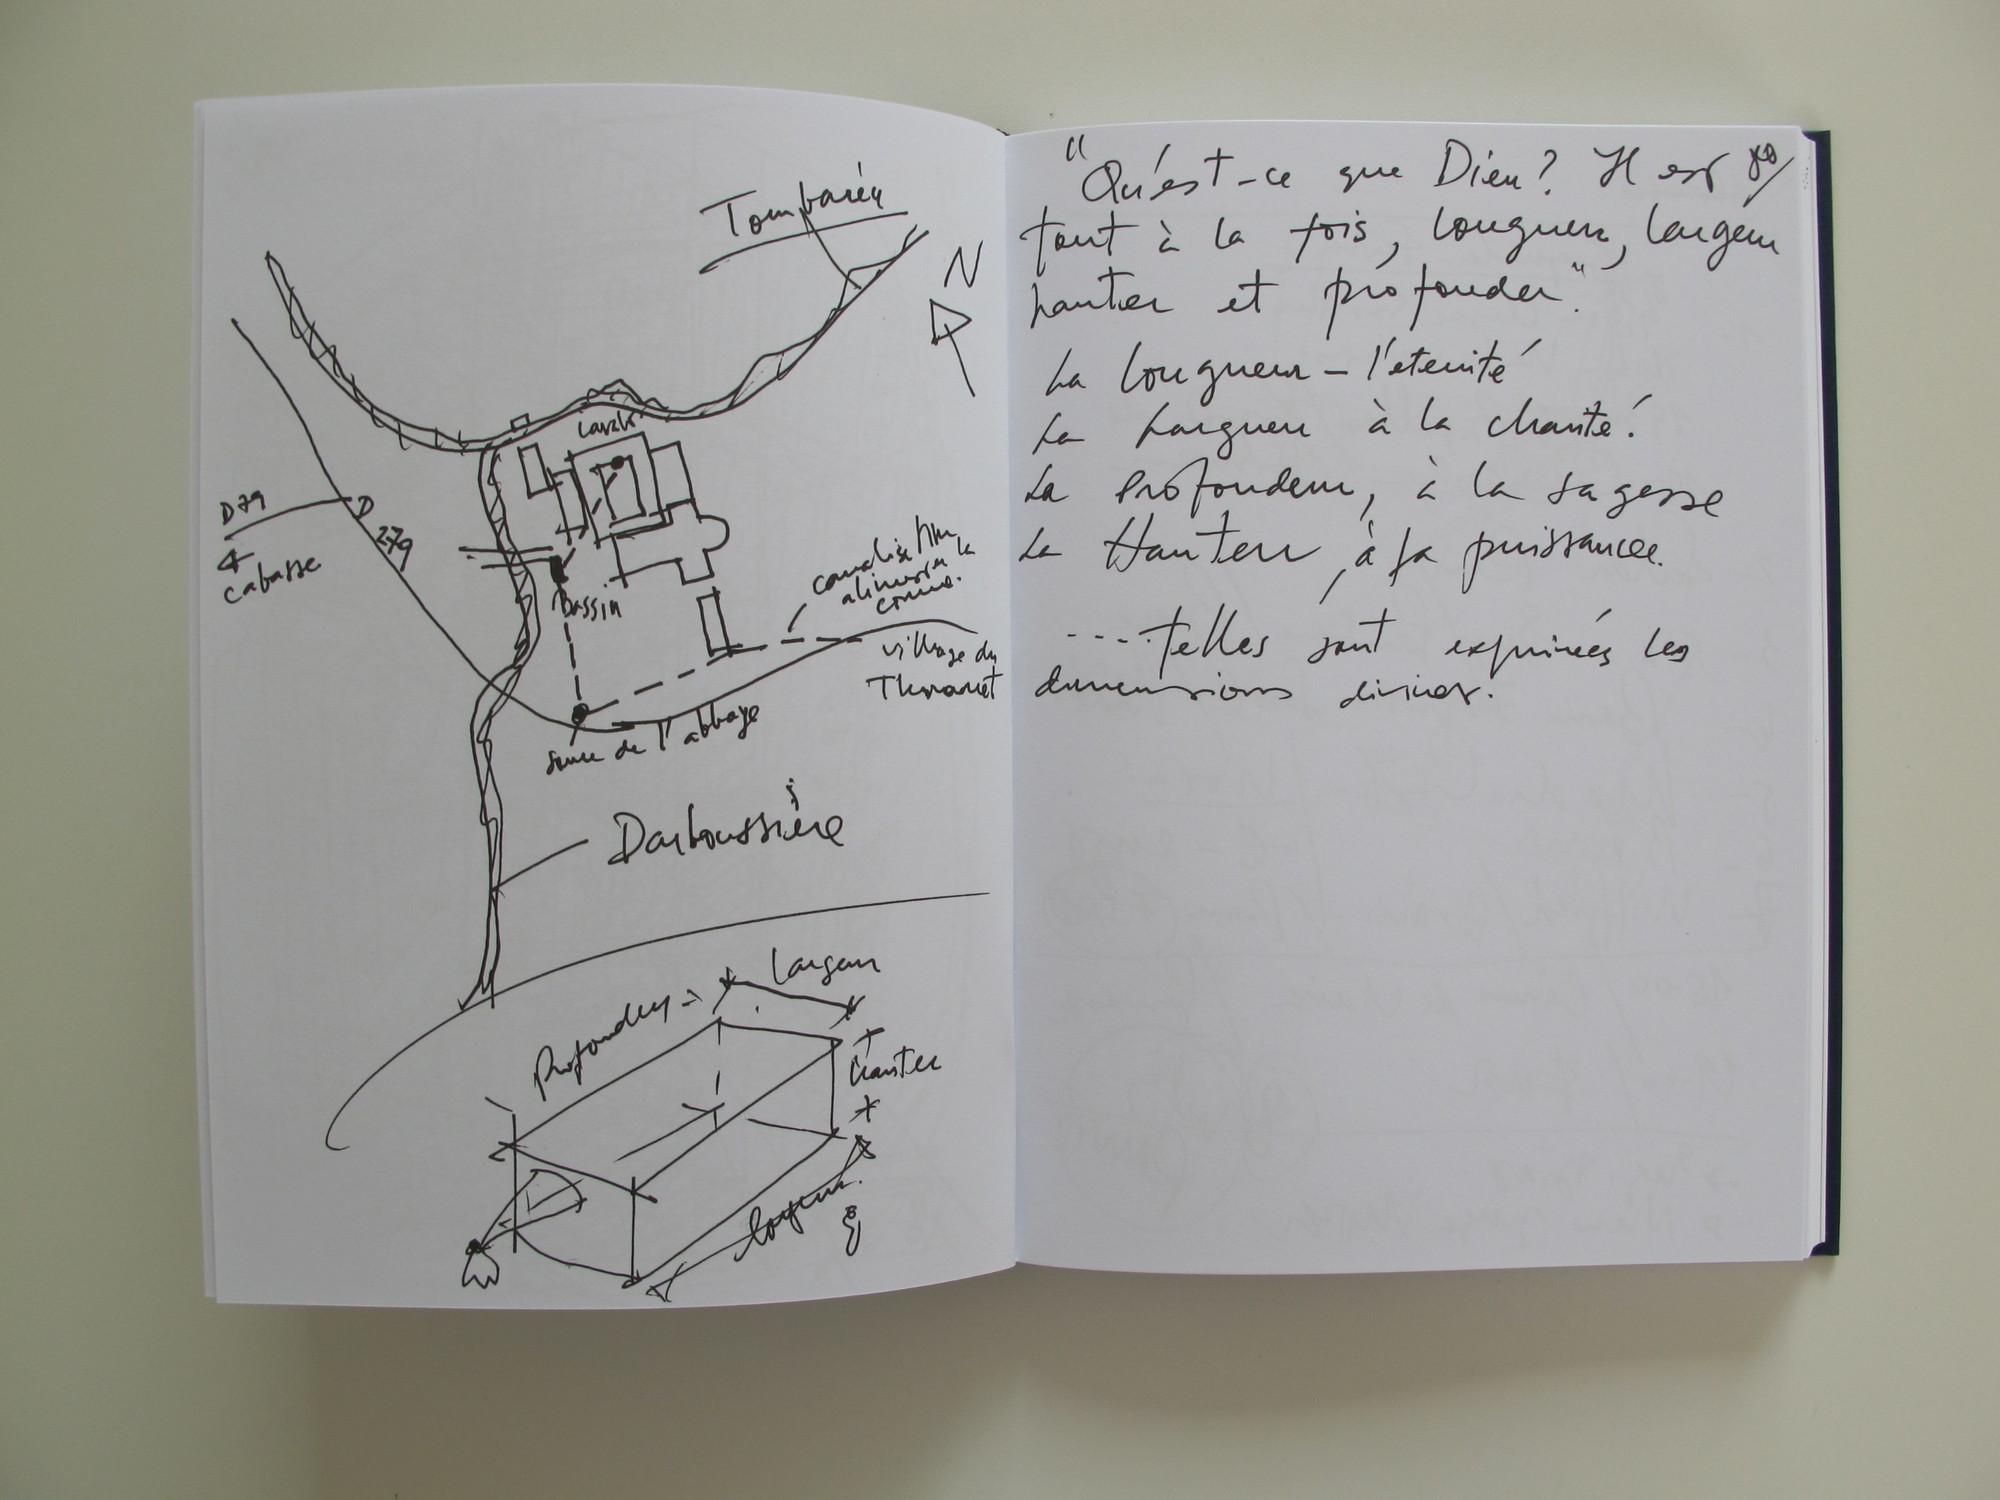 Tombarèu
N
Lavabo
D79
D
279
Cabasse
bassin
canalisation
alimentant la
comm.
village du
Thoronet
source de l'abbaye
Darboussière
Largeur
Profondeur
hauteur
longueur.
"Qu'est-ce que Dieu? Il est
tout à la fois, longueur, largeur
hauteur et profondeur".
La longueur – l'eternité
La Largueur à la charité.
La Profondeur, à la sagesse
La Hauteur, à sa puissance.
....telles sont exprimées les
dimensions divines.